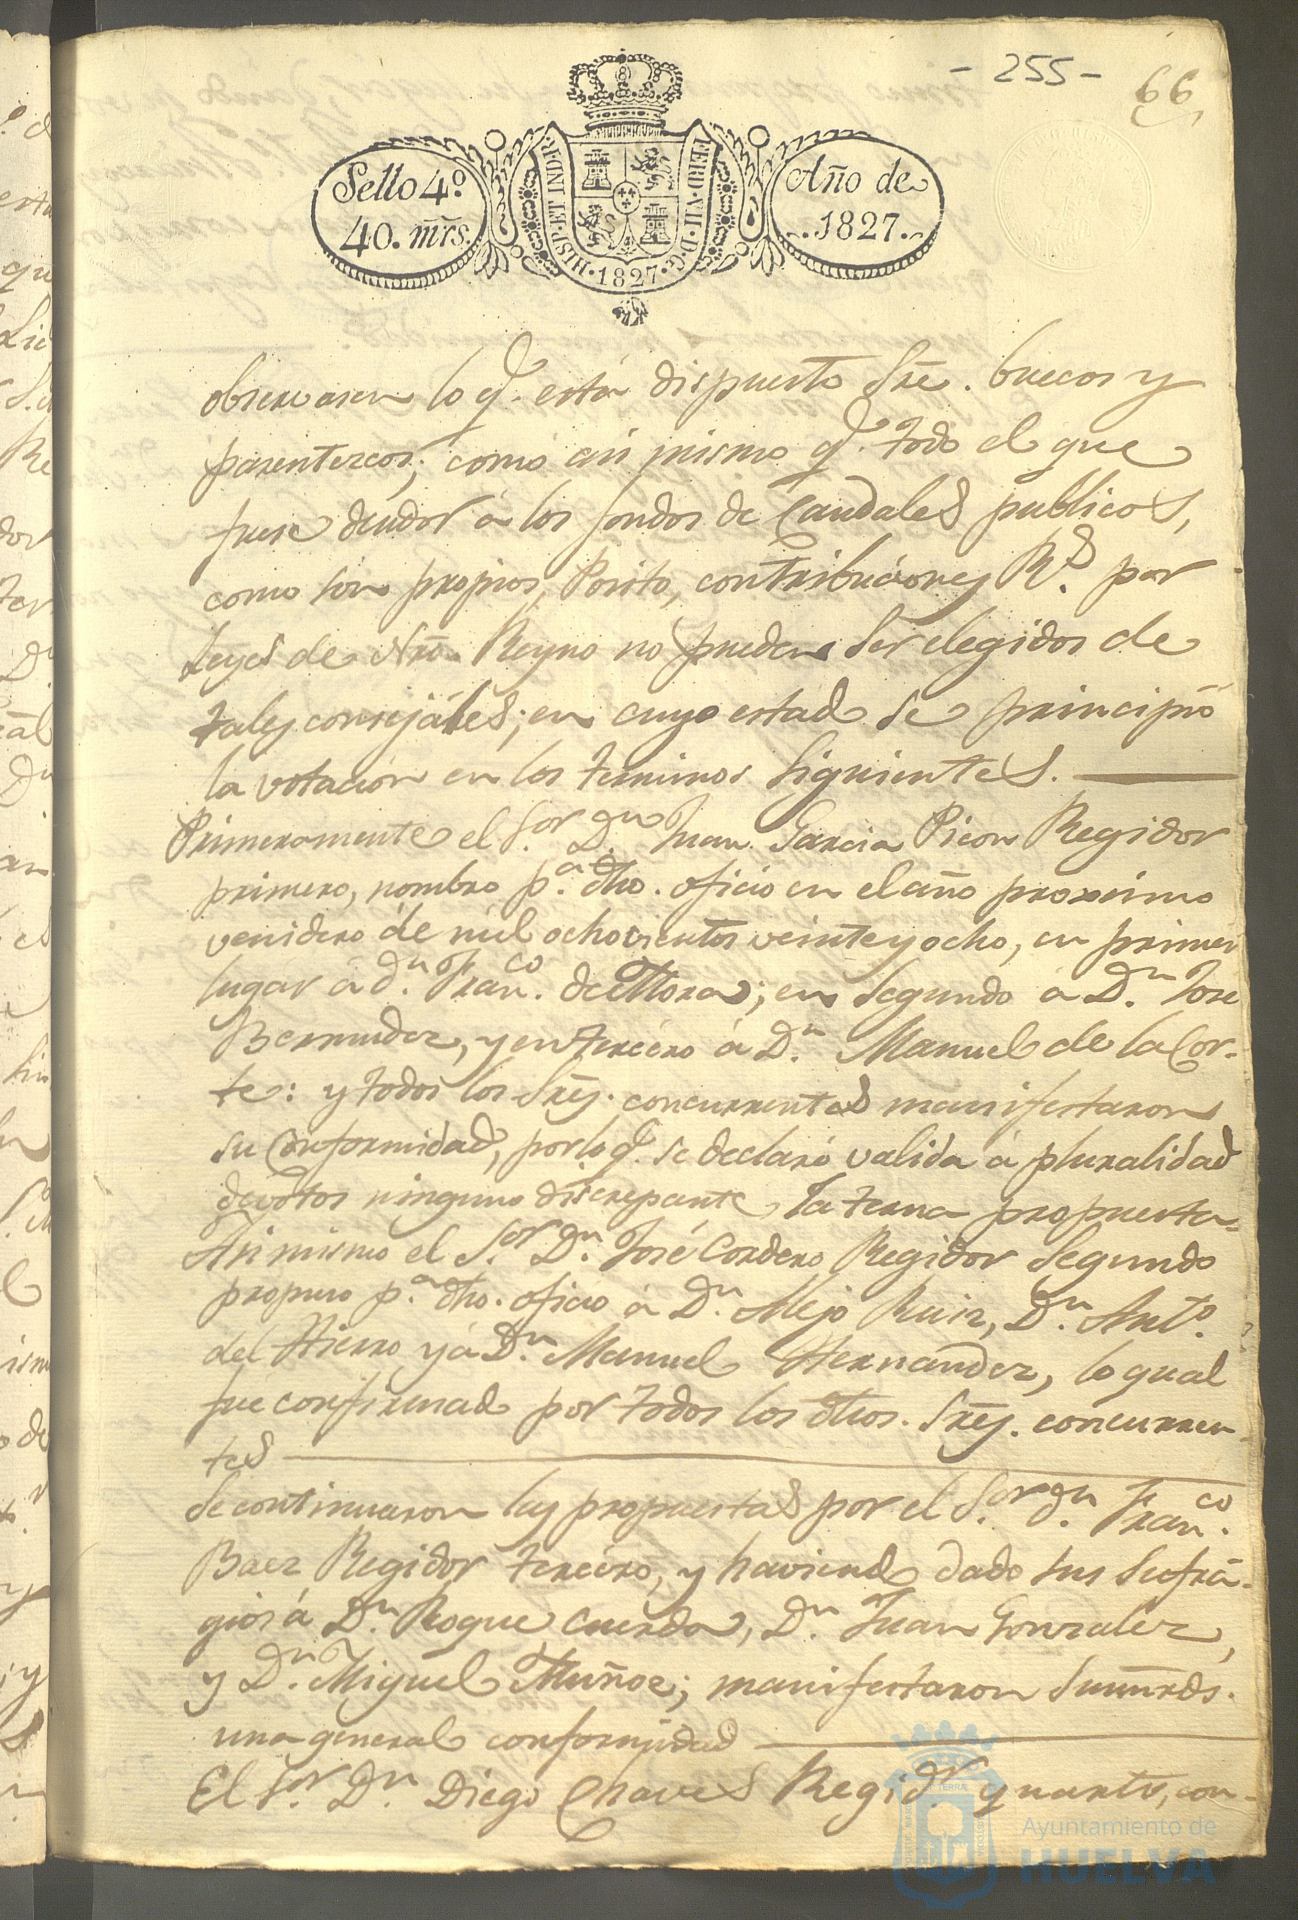 - 255 -
66
Sello 4º
40. mrs.
HISP. ET IND. R.
FERD. VII. D. G.
· 1827 ·
Año de
1827.
observasen lo q.e está dispuesto Sre. huecos y
parentezcos; como asi mismo q.e todo el que
fuese deudor á los fondos de Caudales publicos,
como son propios, Posito, contribuciones R.s por
Leyes de Nro. Reyno no pueden Ser elegidos de
tales consejáles; en cuyo estado se principió
la votacion en los terminos Siguientes.
Primeramente el S.or D.n Juan Garcia Picon Regidor
primero, nombro p.a dho. oficio en el año proximo
venidero de mil ochocientos veinte y ocho, en primer
lugar á d.n Fran.co de Mora; en Segundo á D.n Jose
Bermudez, y en tercero á D.n Manuel de la Cor-
te: y todos los Sres. concurrentes manifestaron
su Conformidad, por lo q.e se declaró valida á pluralidad
de votos ninguno discrepante, la terna propuesta
Asi mismo el S.or D.n José Cordero Regidor Segundo
propuso p.a dho. oficio á D.n Alejo Ruiz, D.n Ant.o
del Hierro y á D.n Manuel Hernandez, lo qual
fue confirmado por todos los dhos. Sres. concurren-
tes
Se continuaron las propuestas por el S.or D.n Fran.co
Baez Regidor tercero, y haviendo dado sus Sufrá-
gios á D.n Roque Cuerda, D.n Juan Gonzalez,
y D.n Miguel Muñoz; manifestaron Sumrds.
una general conformidad
El S.or D.n Diego Chaves Regid.r quarto, con-
Ayuntamiento de
HUELVA